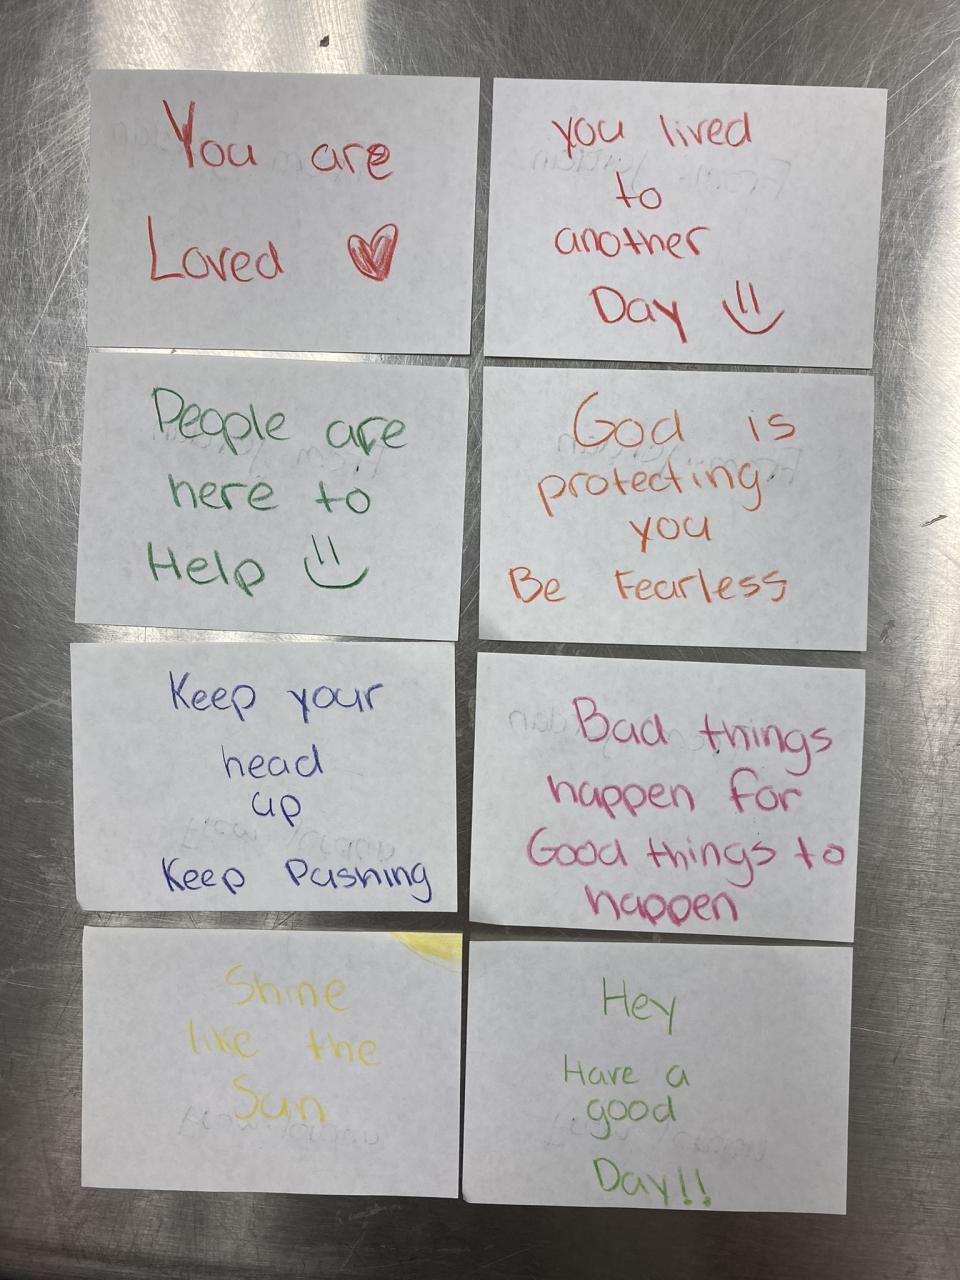 You are
Loved
you lived
to
another
Day
People are
here to
Help
God is
protecting
you
Be Fearless
Keep your
head
up
Keep Pushing
Bad things
happen for
Good things to
happen
Shine
like the
Sun
Hey
Have a
good
Day!!